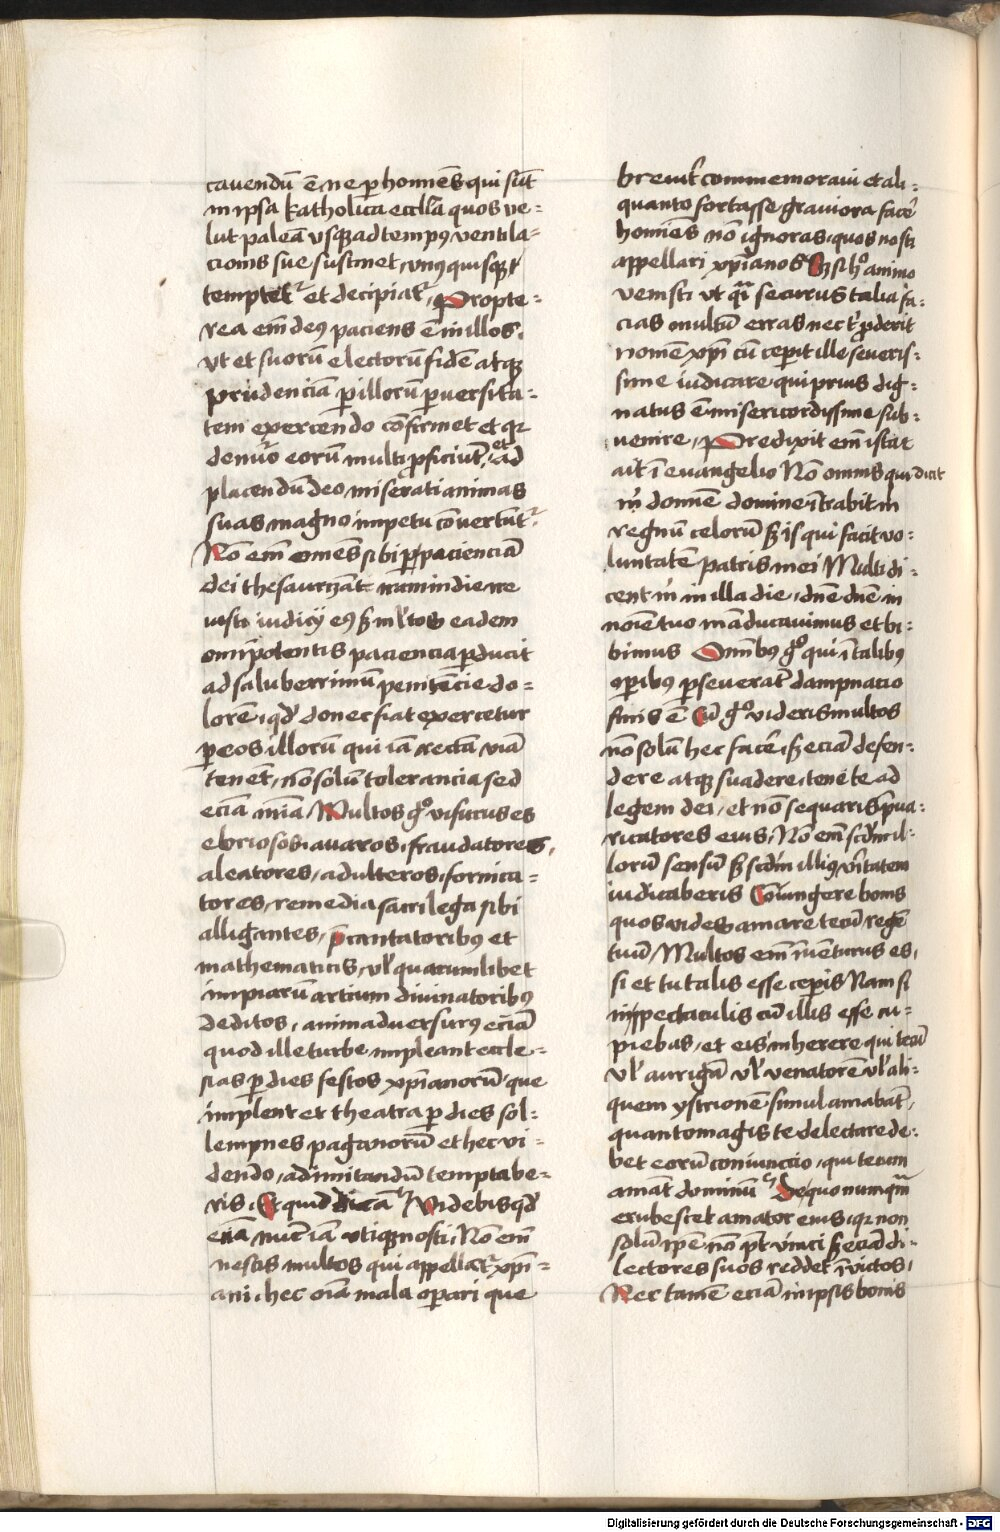 cauendū ē ne ꝑ homīes qui sūt
in ipsa katholica eccl̄ia quos ve-
lut paleā vsq̄ ad tempꝰ ventila-
cionis sue sustinet, vnꝰquisq̄
temptet᷑ et decipiat᷑, Propte-
rea em̄ deꝰ paciens ē in illos,
vt et suorū electorū fidē atq̄
prudenciā ꝑ illorū ꝑuersita-
tem exercendo cōfirmet et qꝛ
de nūo eorū multi ꝓficiūt, et ad
placendū deo miserati animas
suas magno impetu cōuertūt᷑
Nō em̄ omēs sibi ꝑ pacienciā
dei thesaurizāt iram in die ire
iusti iudicij eꝰ sꝫ ml̄tos eadem
omīpotentis paciencia ꝑducit
ad saluberrimū penitēcie do-
lorē, qd̄ donec fiat exercetur
ꝑ eos illorū qui iā rectā viā
tenēt, nō solū tolerancia sed
eciā mīa, Multos gͦ visurus es
ebriosos, auaros, fraudatores,
aleatores, adulteros, fornica-
tores, remedia sacrilega sibi
alligantes, p̄cantatoribꝰ et
mathematicis, vl̄ quarumlibet
impiarū artium diuinatoribꝰ
deditos, animaduersurꝰ eciā
quod ille turbe impleant eccle-
sias ꝑ dies festos xp̄ianorū que
implent et theatra ꝑ dies sol-
lempnes paganorū et hec vi-
dendo, ad imitandū temptabe-
ris, Et quid dicā videbis qd̄
eciā nūc iā vtiq̄ nosti, Nō em̄
nescis multos qui appellāt᷑ xp̄i-
ani, hec oīa mala oꝑari que
breuit᷑ commemoraui et ali-
quanto fortasse grauiora facē
homīes nō ignoras, quos nosti
appellari xp̄ianos Sꝫ si hͦ animo
venisti vt qͣi securus talia fa-
cias multū erras nec t̄ ꝓderit
nomē xp̄i cū ceperit ille seueris-
sime iudicare qui prius dig-
natus ē misericordissime sub-
uenire, Predixit em̄ ista et
ait ī euangelio Nō omnis qui dicit
m̄ domīe domine ītrabit in
regnū celorū sꝫ is qui facit vo-
luntatē patris mei Multi di-
cent m̄ in illa die, dn̄e dn̄e in
noīe tuo māducauimus et bi-
bimus Omībꝰ gͦ qui ī talibꝰ
oꝑibꝰ ꝑseuerāt dampnacio
finis ē Cū gͦ videris multos
nō solū hec facē, sꝫ eciā defen-
dere atq̄ suadere, tene te ad
legem dei, et nō sequaris p̄ua-
ricatores eius, Nō em̄ scd̄m il-
lorū sensū sꝫ scd̄m illiꝰ v̄itatem
iudicaberis Cōiungere bonis
quos vides amare tecū regē
tuū, Multos em̄ īuenturus es,
si et tu talis esse ceperis Nam si
in spectaculis cū illis esse cu-
piebas, et eis inherere qui tecū
vl̄ aurigā vl̄ venatorē vl̄ ali-
quem ystrionē simul amabāt,
quanto magis te delectare de-
bet eorū coniunctio, qui tecum
amāt dominū De quo numqͣm
erubescet amator eius, qꝛ non
solū ip̄e nō pt̄ vinci sꝫ eciā di-
lectores suos reddet īuictos,
Nec tamē eciā in ipsis bonis
Digitalisierung gefördert durch die Deutsche Forschungsgemeinschaft - DFG